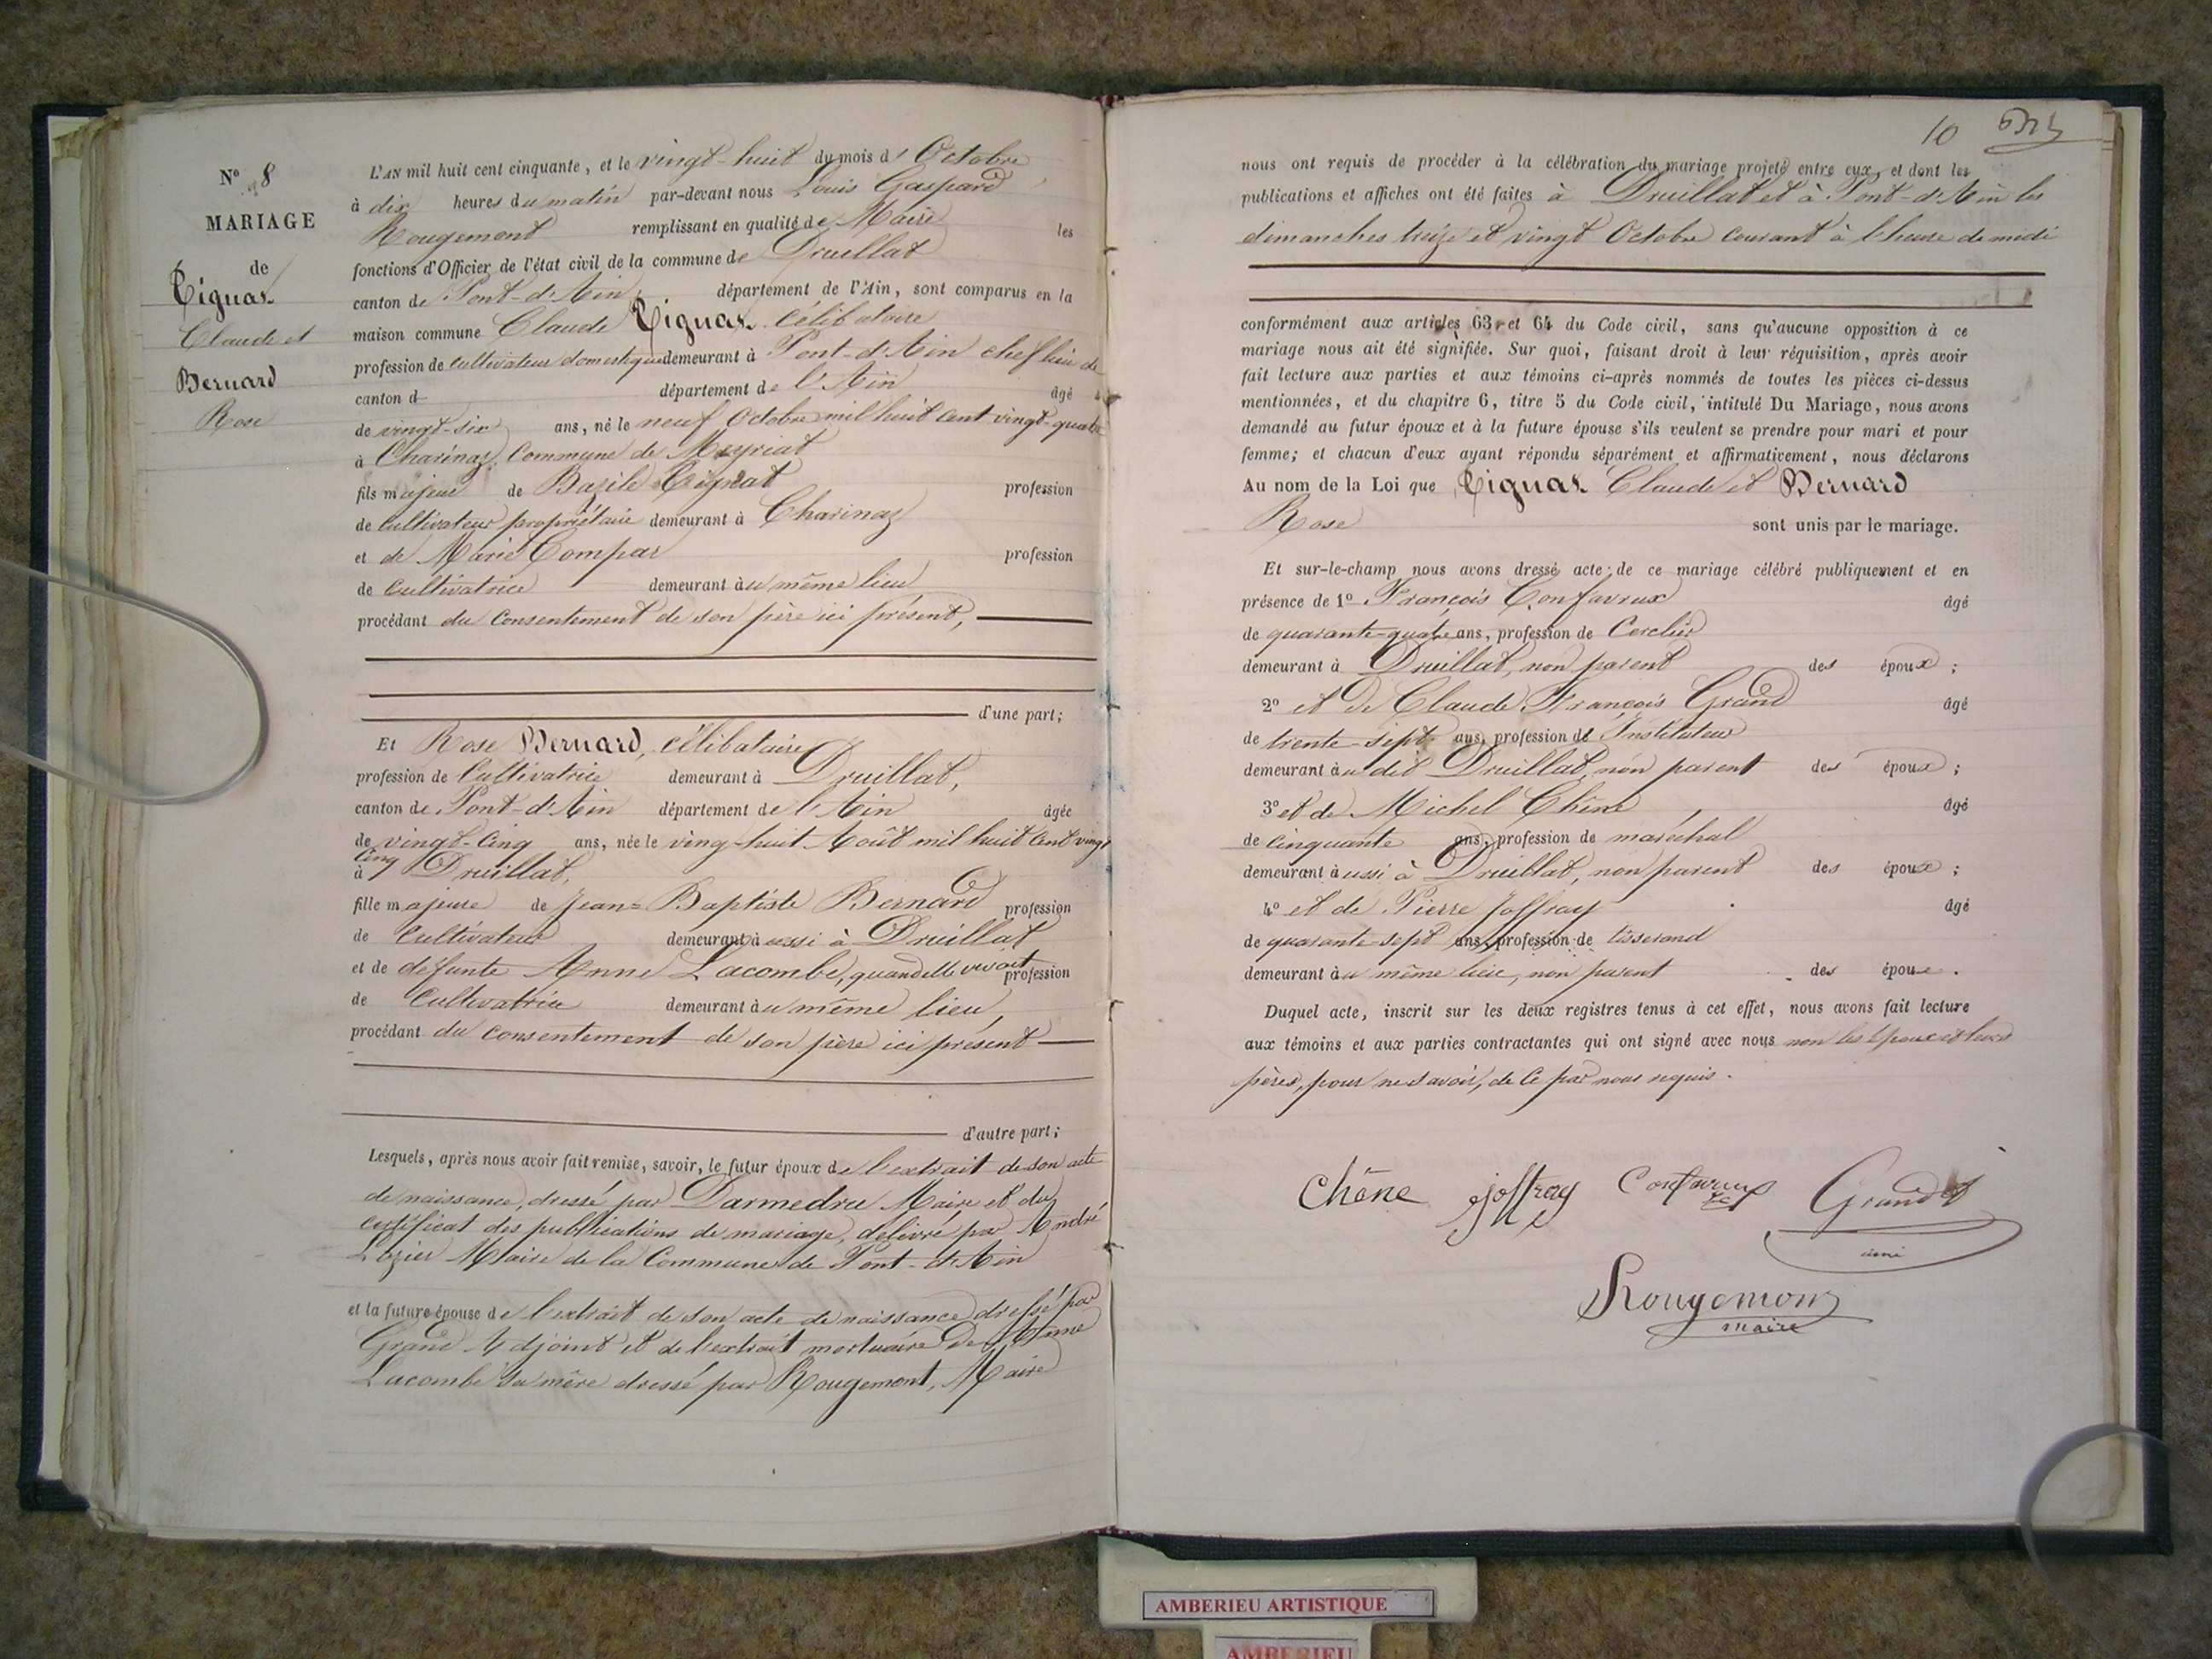 N° 8
MARIAGE
de
Tignat
Claude et
Bernard
Rose
L'AN mil huit cent cinquante, et le vingt-huit du mois d' Octobre
à dix heures du matin par-devant nous Louis Gaspard
Rougemont remplissant en qualité de Maire les
fonctions d'Officier de l'état civil de la commune de Druillat
canton de Pont-d'Ain, département de l'Ain, sont comparus en la
maison commune Claude Tignat célibataire
profession de cultivateur domestique demeurant à Pont-d'Ain chef lieu de
canton d département de l'Ain âgé
de vingt-six ans, né le neuf Octobre mil huit cent vingt-quatre
à Charinaz, Commune de Meyriat
fils majeur de Bazile Tignat profession
de cultivateur propriétaire demeurant à Charinaz
et de Marie Compar profession
de cultivatrice demeurant au même lieu
procédant du consentement de son père ici présent,
d'une part;
Et Rose Bernard, célibataire
profession de Cultivatrice demeurant à Druillat,
canton de Pont-d'Ain département de l'Ain âgée
de vingt-cinq ans, née le ving-huit Août mil huit cent vingt
cinq
à Druillat,
fille majeure de Jean-Baptiste Bernard profession
de Cultivateur demeurant aussi à Druillat
et de défunte Anne Lacombe, quand elle vivait profession
de Cultivatrice demeurant au même lieu,
procédant du consentement de son père ici présent
d'autre part;
Lesquels, après nous avoir fait remise, savoir, le futur époux de l'extrait de son acte
de naissance, dressé par Darmedru Maire et du
certificat des publications de mariage, délivré par André
Lozier Maire de la Commune de Pont-d'Ain
et la future épouse de l'extrait de son acte de naissance dressé par
Grand Adjoint et de l'extrait mortuaire de Anne
Lacombe sa mère dressé par Rougemont, Maire
10
nous ont requis de procéder à la célébration du mariage projeté entre eux, et dont les
publications et affiches ont été faites à Druillat et à Pont-d'Ain les
dimanches treize et vingt Octobre courant à l'heure de midi
conformément aux articles 63 et 64 du Code civil, sans qu'aucune opposition à ce
mariage nous ait été signifiée. Sur quoi, faisant droit à leur réquisition, après avoir
fait lecture aux parties et aux témoins ci-après nommés de toutes les pièces ci-dessus
mentionnées, et du chapitre 6, titre 5 du Code civil, intitulé Du Mariage, nous avons
demandé au futur époux et à la future épouse s'ils veulent se prendre pour mari et pour
femme; et chacun d'eux ayant répondu séparément et affirmativement, nous déclarons
Au nom de la Loi que Tignat Claude et Bernard
Rose sont unis par le mariage.
Et sur-le-champ nous avons dressé acte de ce mariage célébré publiquement et en
présence de 1° François Confavreux âgé
de quarante-quatre ans, profession de Cerclier
demeurant à Druillat, non parent des époux;
2° et de Claude François Grand âgé
de trente-sept ans, profession de Instituteur
demeurant au dit Druillat, non parent des époux;
3° et de Michel Chêne âgé
de cinquante ans, profession de maréchal
demeurant aussi à Druillat, non parent des époux;
4° et de Pierre Joffray âgé
de quarante-sept ans, profession de tisserand
demeurant au même lieu, non parent des époux.
Duquel acte, inscrit sur les deux registres tenus à cet effet, nous avons fait lecture
aux témoins et aux parties contractantes qui ont signé avec nous non les époux et leurs
pères, pour ne savoir, de ce par nous requis.
Chêne Joffray Confavreux Grand
Rougemont
maire
AMBERIEU ARTISTIQUE
AMBERIEU